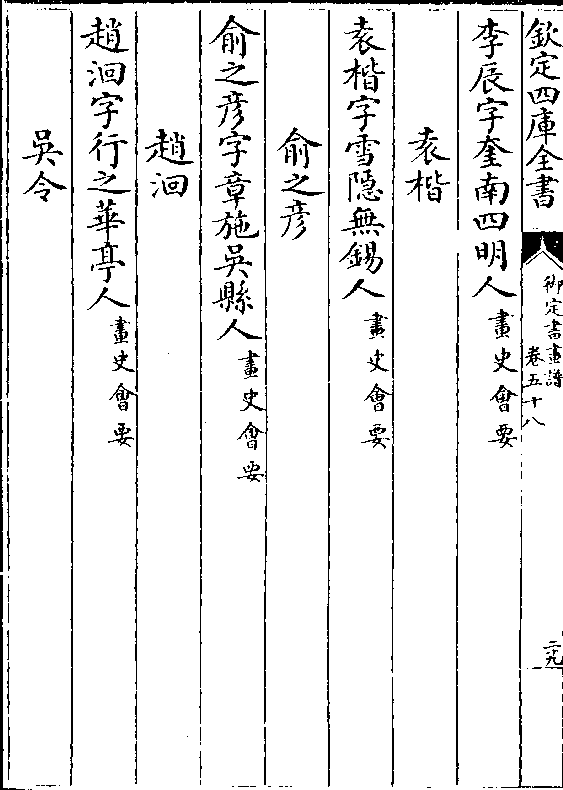 欽定四庫全書
御定書畫譜
卷五十八
二九
李辰字奎南四明人畫史會要
袁楷
袁楷字雪隱無錫人畫史會要
俞之彥
俞之彥字章施吳縣人畫史會要
趙洄
趙洄字行之華亭人畫史會要
吳令